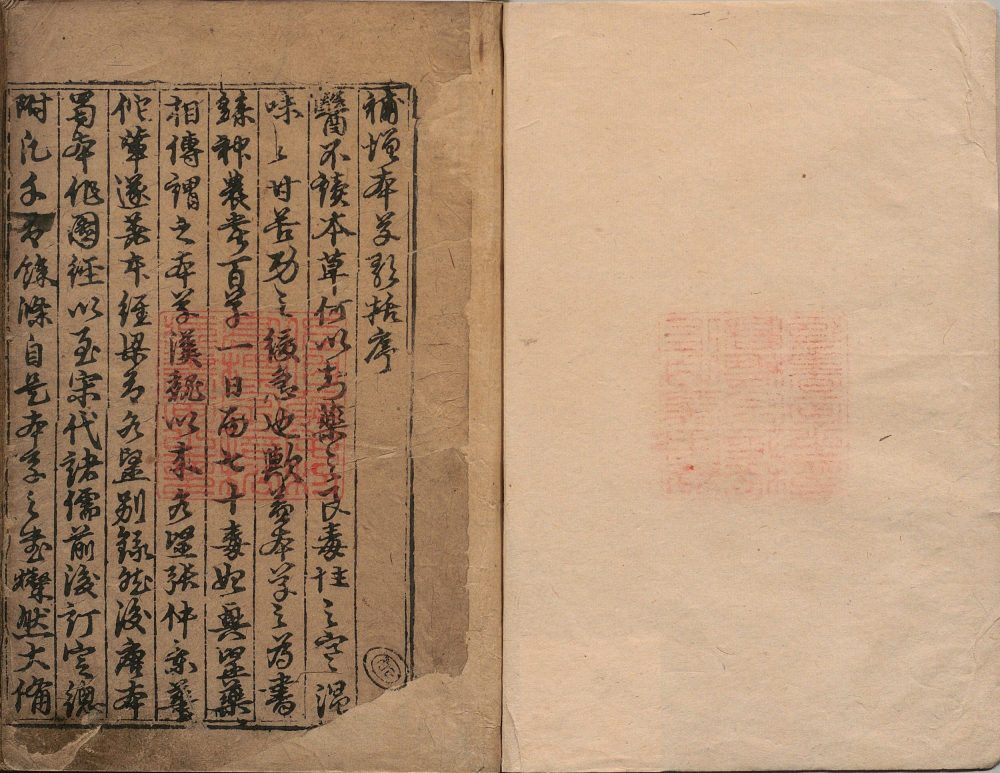 補增本草歌括序
醫不讀本草何以知藥之良毒性之寒溫
味之甘苦功之緩急也歟盖本草之為書
錄神農嘗百草一日而七十毒始興毉藥
相傳謂之本草漢魏以來名毉張仲景華
佗輩遂着本經梁有名毉别錄然後唐本
蜀本作圖經以至宋代諸儒前後訂定總
附凡千有餘條自是本草之書燦然大備